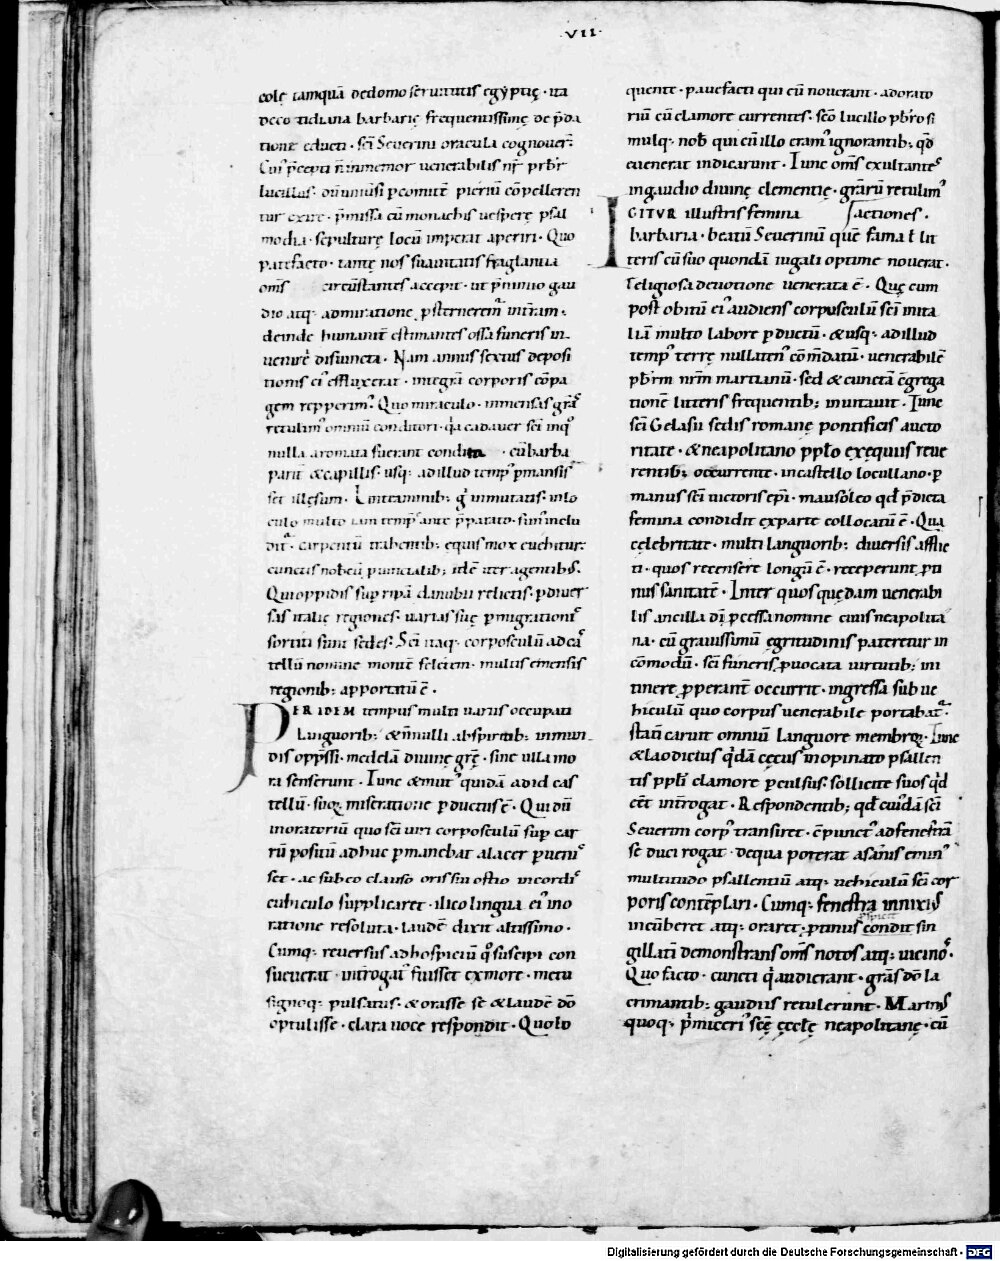 ·VII·
cole tamquā dedomo ser̄uitutis egẏptię · ita
deco tidiana barbarię frequentissimę de p̄da
tione educti · sc̄i Seuerini oracula cognouer̄·
Cui᾽ p̄cepti n̄ inmemor uenerabilis nr̄ prb̄r
lucillus· dū uniūsi p comitē pieriū cōpelleren
tur exire · p̄missa cū monachis uespere psal
modia · sepulturę locū imperat aperiri · Quo
patefacto · tantę nos suauitatis fraglantia
om̄s circūstantes accepit · ut p̄ nimio gau
dio atq; admiratione ꝓsternerem᾽ intram·
deinde humanit̄ estimantes ossa funeris in
uenire disiuncta · Nam annus sextus deposi
tionis ei᾽ effluxerat · integrā corporis cōpa
gem repperim᾽· Quo miraculo · inmensas grās
retulim᾽ omniū conditori · qa cadauer sc̄i inquo
nulla aromata fuerant condita · cū barba
parit̄ & capillis· usq; adillud temp᾽ pmansis
set illęsum · Linteaminib; g inmutatis· inlo
culo multo iam temp᾽ ante p̄parato · fun᾽ inclu
dit᾽· carpentū trahentib; equis mox euehitur·
cunctis nobcū puincialib; idē iter agentib᾽·
Qui oppidis sup ripā danubii relictis· p diuer
sas italię regiones· uarias suę pmigrationis
sortiti sunt sedes· Sc̄i itaq; corposculū ad cas
tellū nomine montē feletem · multis emensis
regionib; apportatū ē ·
PER IDEM tempus multi uariis occupati
languorib; & n̄nulli abspiritib; inmun
dis opp̄ssi · medelā diuinę grę̄ · sine ulla mo
ra senserunt · Tunc & mut᾽ quidā ad id cas
tellū · suoꝝ miseratione pductus ē · Qui dū
inoratoriū quo sc̄i uiri corposculū sup car
rū positū adhuc pmanebat alacer puenis
set · ac sub eo clauso oris sui ostio in cordis
cubiculo supplicaret · ilico lingua ei᾽ ino
ratione resoluta · laudē dixit altissimo ·
Cumq; reuersus adhospiciū quo suscipi con
sueuerat · introgat᾽ fuisset ex more · metu
signoq; pulsatus· & orasse se & laudē dō
optulisse · clara uoce respondit · Quo lo
quente · pauefacti qui eū nouerant · adorato
riū cū clamore currentes· sc̄o lucillo pb̄ro si
mulq; nob᾽ qui cū illo eram᾽ ignorantib; qd
euenerat indicarunt · Tunc om̄s exultantes
ingaudio diuinę clementię · grārū retulim᾽
IGITUR illustris femina /actiones ·
barbaria · beatū Seuerinū quē fama ł lit
teris cū suo quondā iugali optime nouerat·
religiosa deuotione uenerata ē · Quę cum
post obitū ei᾽ audiens corpusculū sc̄i inita
liā multo labore pductū · & usq; ad illud
temp᾽ terrę nullaten᾽ cōm̄datū · uenerabilē
pb̄rm nr̄m martianū · sed & cunctā cōgrega
tionē litteris frequentib; inuitauit · Tunc
sc̄i Gelasii sedis romanę pontificis aucto
ritate · & neapolitano pp̄lo exequiis reue
rentib; occurrente · incastello locullano · p
manus sc̄i uictoris ep̄i · mausoleo qd p̄dicta
femina condidit exparte collocatū ē · Qua
celebritate · multi languorib; diuersis afflic
ti · quos recensere longū ē · receperunt pti
nus sanitatē · Inter quos quędam uenerabi
lis ancilla dī pcessa nomine ciuis neapolita
na · cū grauissimū egritudinis pateretur in
cōmodū · sc̄i funeris puocata uirtutib; in
tinere pperant̄ occurrit · ingressa sub ue
hiculū quo corpus uenerabile portabat᾽·
statī caruit omniū languore membroꝝ · Tunc
& laodicius qdā cęcus inopinato psallen
tis ppl̄i clamore pculsus· sollicite suos qd
eēt introgat · Respondentib; qd cui᾽dā sc̄i
Seuerini corp᾽ transiret · cōpunct᾽ ad fenestrā
se duci rogat · de qua poterat a sanis emin᾽
multitudo psallentiū atq; uehiculū sc̄i cor
poris contēplari · Cumq; fenestra innixus
spicit
incūberet atq; oraret · ptinus condit sin
gillatī demonstrans om̄s notos atq; uicinos·
Quo facto · cuncti q audierant · grās dō la
crimantib; gaudiis retulerunt · Marinus
quoq; p̄miceri᾽ sc̄ę ęcclę neapolitanę · cū
Digitalisierung gefördert durch die Deutsche Forschungsgemeinschaft · DFG